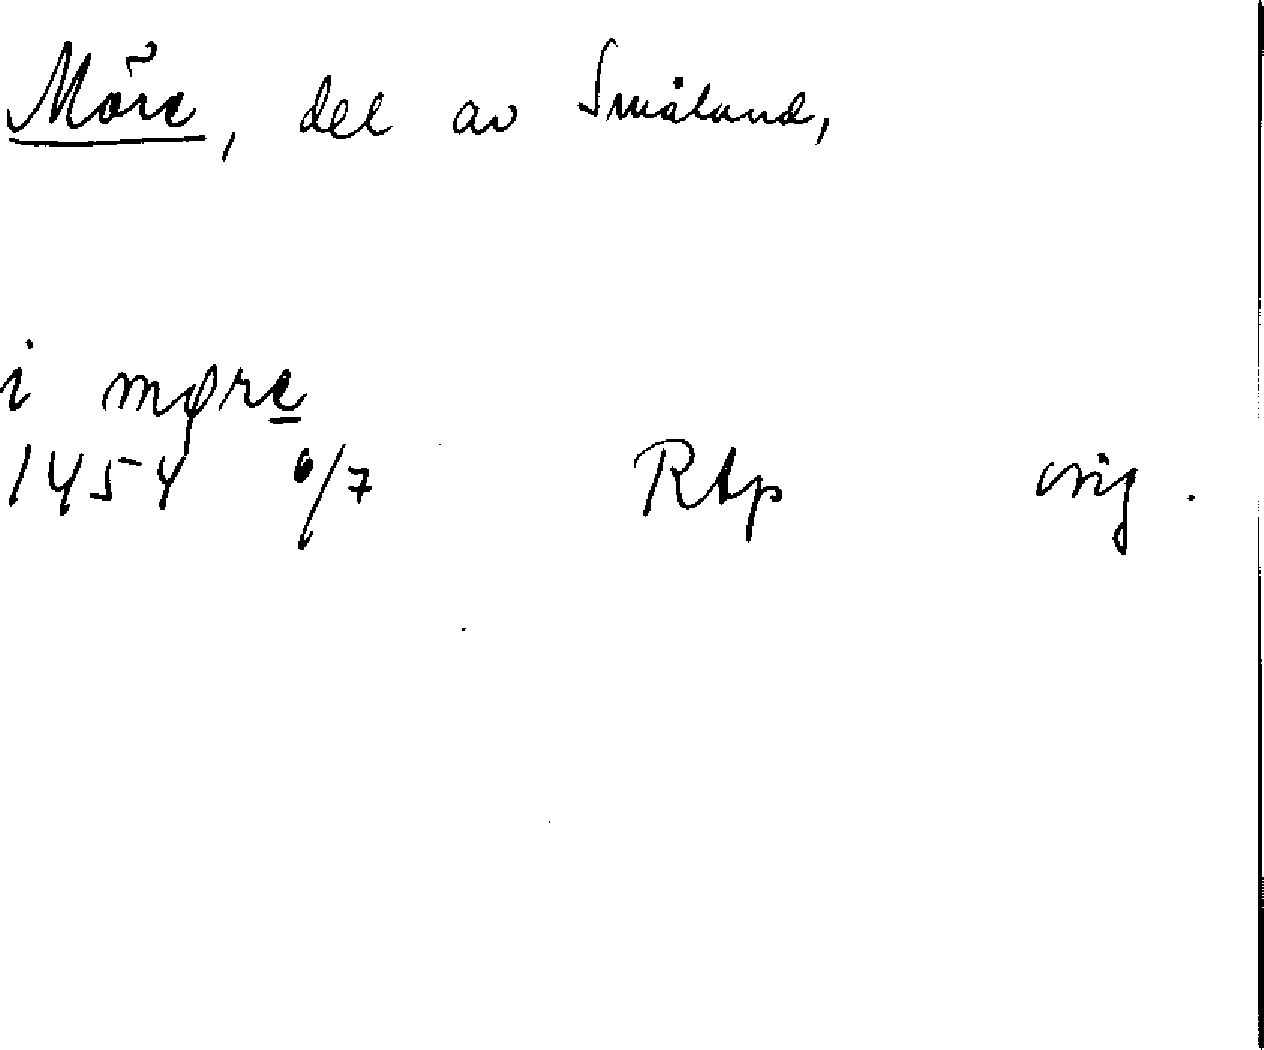 Möre, del av Småland,
i møre
1454 6/7 Rap orig.